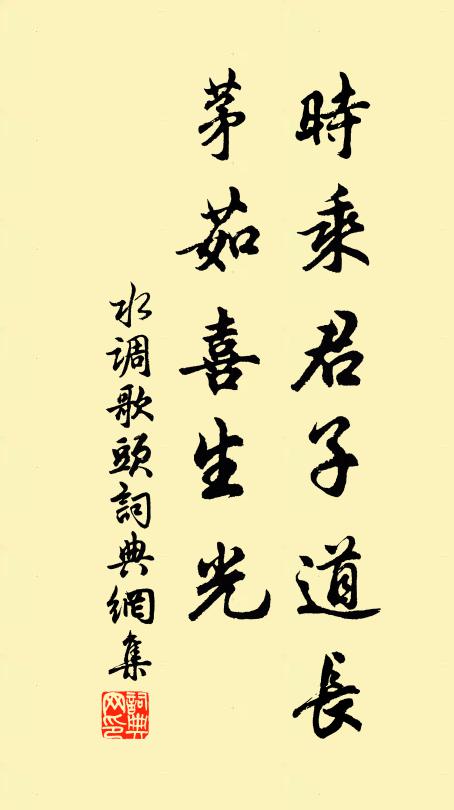 時乘君子道長
茅茹喜生光
水调歌頭詞典網集
詞典网印